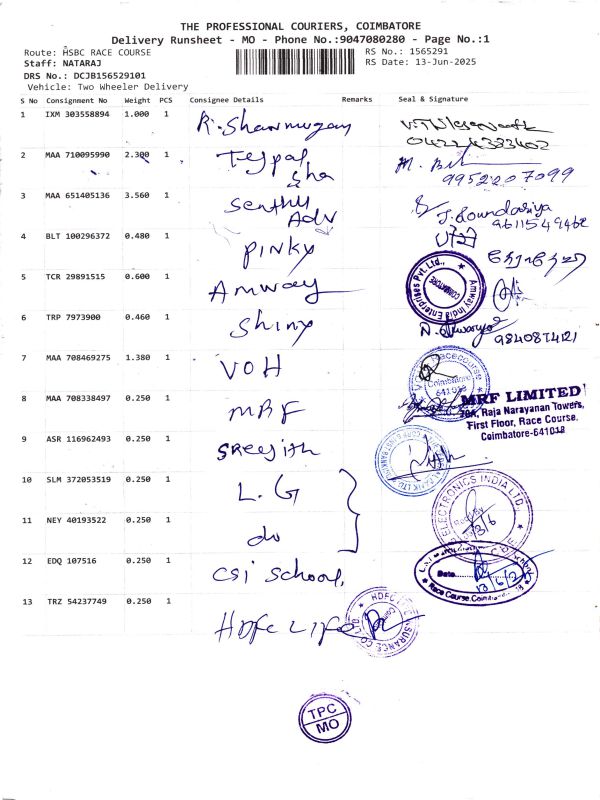 THE PROFESSIONAL COURIERS, COIMBATORE
Delivery Runsheet - MO - Phone No.:9047080280 - Page No.:1
Route: HSBC RACE COURSE
RS No.: 1565291
Staff: NATARAJ
RS Date: 13-Jun-2025
DRS No.: DCJB156529101
Vehicle: Two Wheeler Delivery
S No Consignment No Weight PCS Consignee Details Remarks Seal & Signature
1 IXM 303558894 1.000 1 R. Shanmugam
04224383402
2 MAA 710095990 2.300 1 Tejpal
Sha
9952207099
3 MAA 651405136 3.560 1 Senthil
Adv
J. Soundariya
9611549462
4 BLT 100296372 0.480 1 PINKY
5 TCR 29891515 0.600 1 Amway
Amway India Enterprises Pvt. Ltd.,
COIMBATORE
6 TRP 7973900 0.460 1 Shiny
9840874121
7 MAA 708469275 1.380 1 VOH
Racecourse
Coimbatore
641018
8 MAA 708338497 0.250 1 MRF
MRF LIMITED
70A, Raja Narayanan Towers,
First Floor, Race Course,
Coimbatore-641018
9 ASR 116962493 0.250 1 Sreejith
10 SLM 372053519 0.250 1 L.G
ELECTRONICS INDIA LTD.
13/6
11 NEY 40193522 0.250 1 do
12 EDQ 107516 0.250 1 CSI School,
Date
13/6/25
Race Course, Coimbatore
13 TRZ 54237749 0.250 1 HDFC LIFE
HDFC LIFE INSURANCE CO
TPC
MO